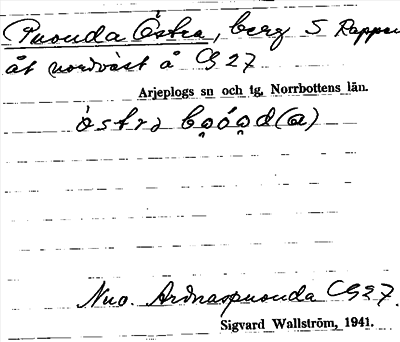 Puouda Östra, berg S Rappen
åt nordväst å C927
Arjeplogs sn och tg, Norrbottens län.
östrə bo̭óo̭d(a)
Nuo. Ardnaspuouda C927.
Sigvard Wallström, 1941.